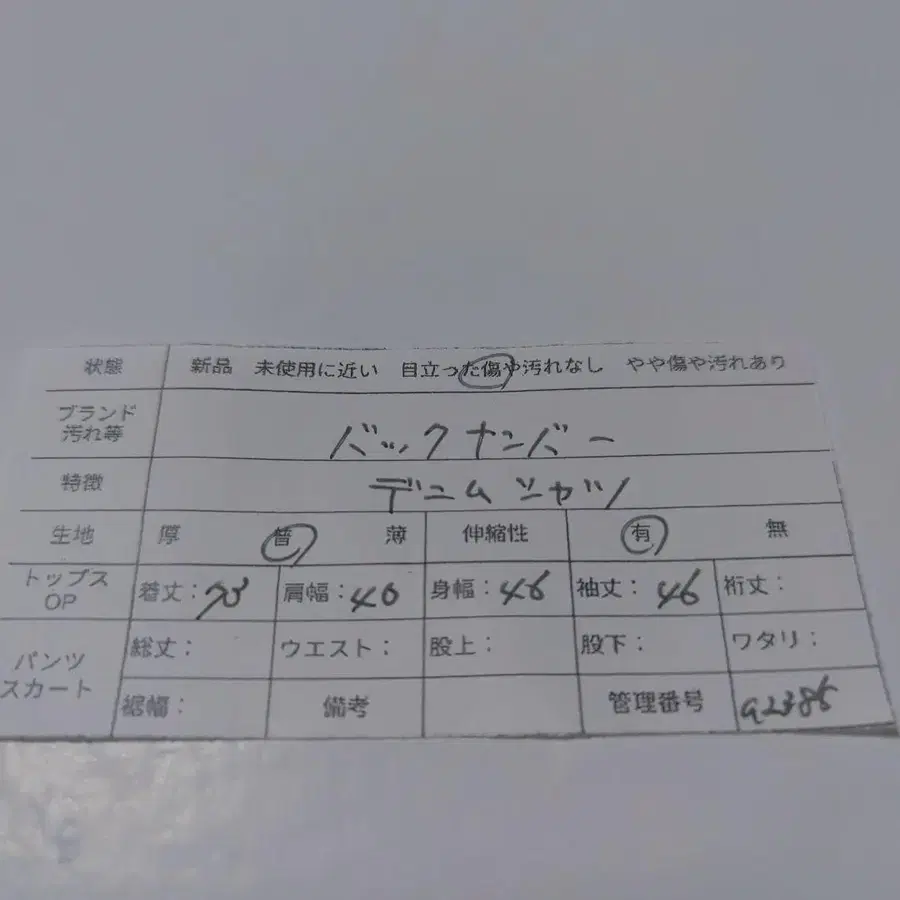 状態 新品 未使用に近い 目立った傷や汚れなし やや傷や汚れあり
ブランド
汚れ等 バックナンバー
特徴 デニムシャツ
生地 厚 普 薄 伸縮性 有 無
トップス
OP 着丈: 肩幅:40 身幅:46 袖丈:46 裄丈:
パンツ
スカート 総丈: ウエスト: 股上: 股下: ワタリ:
裾幅: 備考 管理番号 a2385